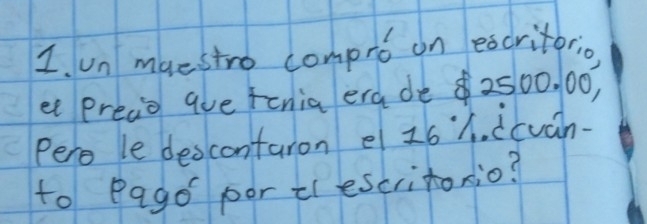 1. Un maestro compró un escritorio,
el precio que tenia era de $2500.00,
Pero le descontaron el 16%. ¿cuán-
to Pagó por el escritorio?